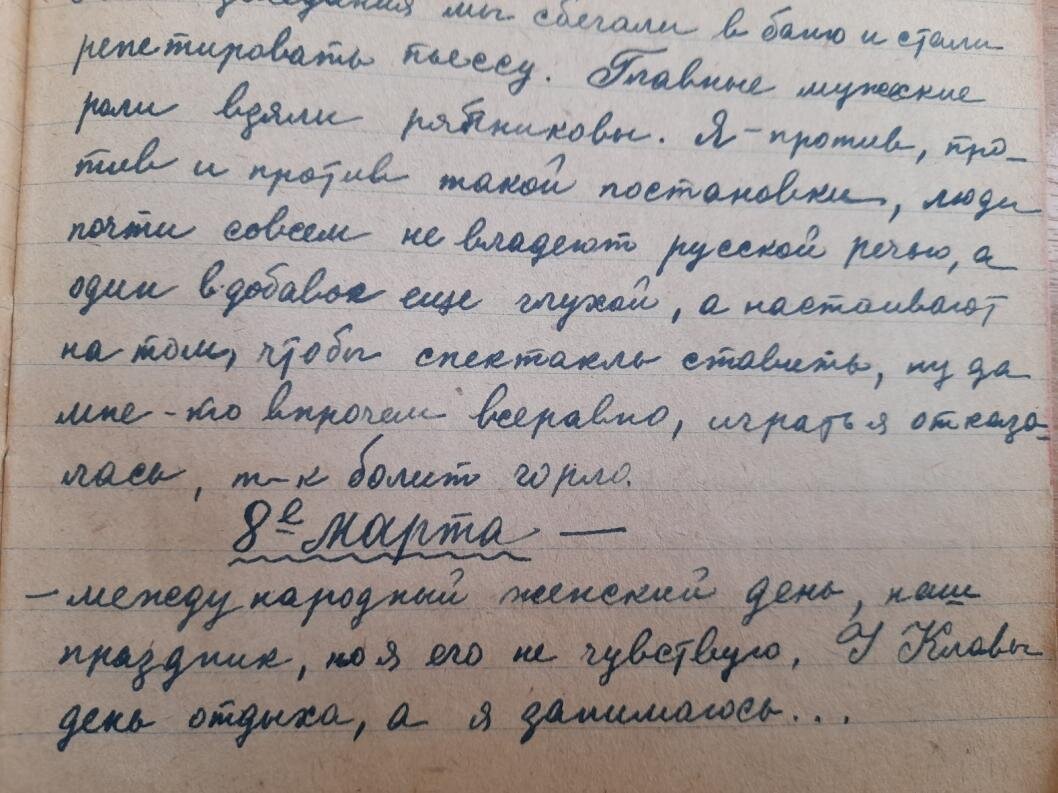 заседания мы сбегали в баню и стали
репетировать пьессу. Главные мужские
роли взяли рятниковы. Я - против, про-
тив и против такой постановки, люди
почти совсем не владеют русской речью, а
один вдобавок еще глухой, а настаивают
на том, чтобы спектакль ставить, ну да
мне-то впрочем всеравно, играть я отказа-
лась, т-к болит горло.
8е марта —
- международный женский день, наш
праздник, но я его не чувствую. У Клавы
день отдыха, а я занимаюсь...